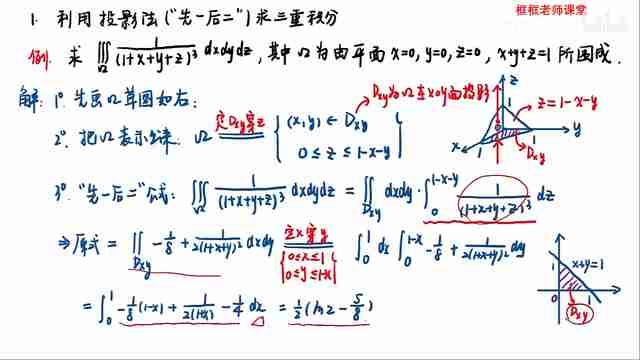 框框老师课堂
1. 利用投影法("先一后二")求三重积分
例. 求 ∭_Ω 1/(1+x+y+z)³ dxdydz, 其中Ω为由平面 x=0, y=0, z=0, x+y+z=1 所围成.
Dxy为Ω在xoy面投影
解: 1° 先画Ω草图如右:
2° 把Ω表示出来: Ω 定Dxy穿z { (x,y) ∈ Dxy
0≤z≤1-x-y }
z
1
z=1-x-y
0
1
y
x
1
Dxy
3° "先一后二"公式: ∭_Ω 1/(1+x+y+z)³ dxdydz = ∬_Dxy dxdy · ∫_0^{1-x-y} 1/(1+x+y+z)³ dz
⇒ 原式 = ∬_Dxy -1/8 + 1/2(1+x+y)² dxdy 定x穿y {0≤x≤1 0≤y≤1-x} ∫_0^1 dx ∫_0^{1-x} -1/8 + 1/2(1+x+y)² dy
1
x+y=1
0
1
Dxy
= ∫_0^1 -1/8(1-x) + 1/2(1+x) - 1/4 dx = 1/2(ln2 - 5/8)